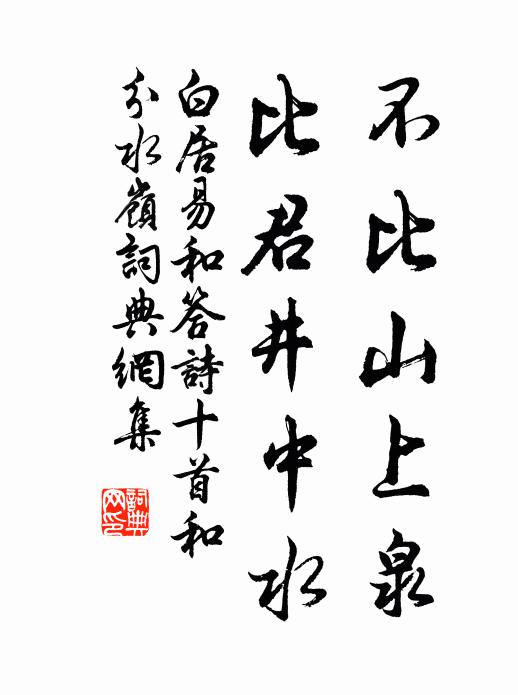 不比山上泉
比君井中水
白居易和答詩十首和
分水嶺詞典網集
詞典
网印